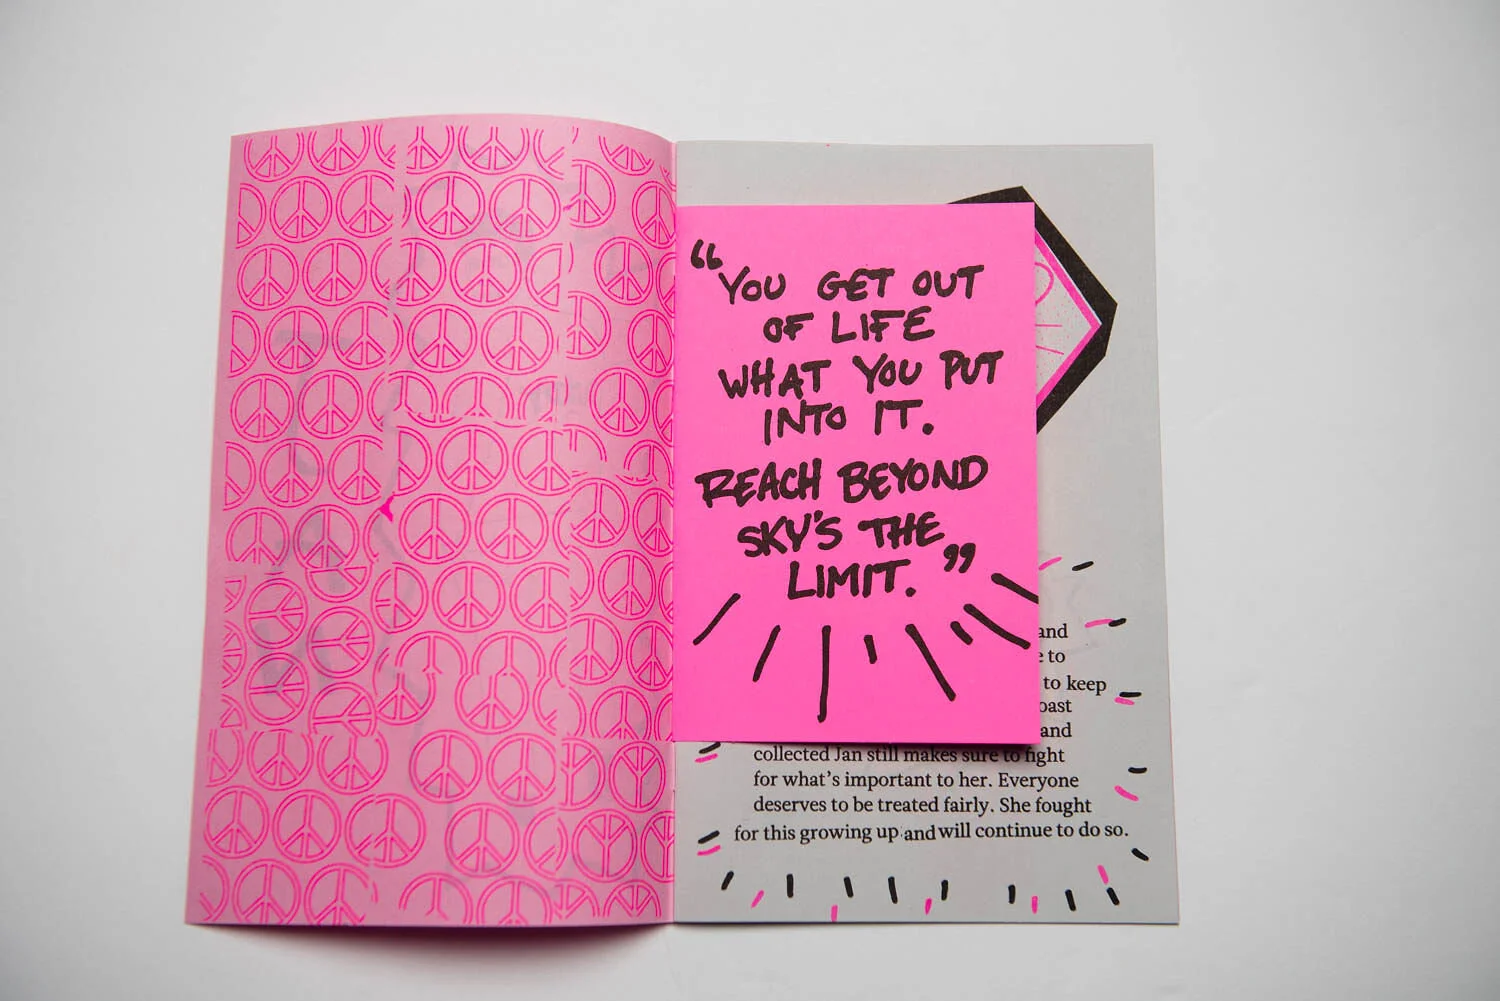 “YOU GET OUT
OF LIFE
WHAT YOU PUT
INTO IT.
REACH BEYOND
SKY'S THE
LIMIT.”
and
to
to keep
and
collected Jan still makes sure to fight
for what's important to her. Everyone
deserves to be treated fairly. She fought
for this growing up and will continue to do so.